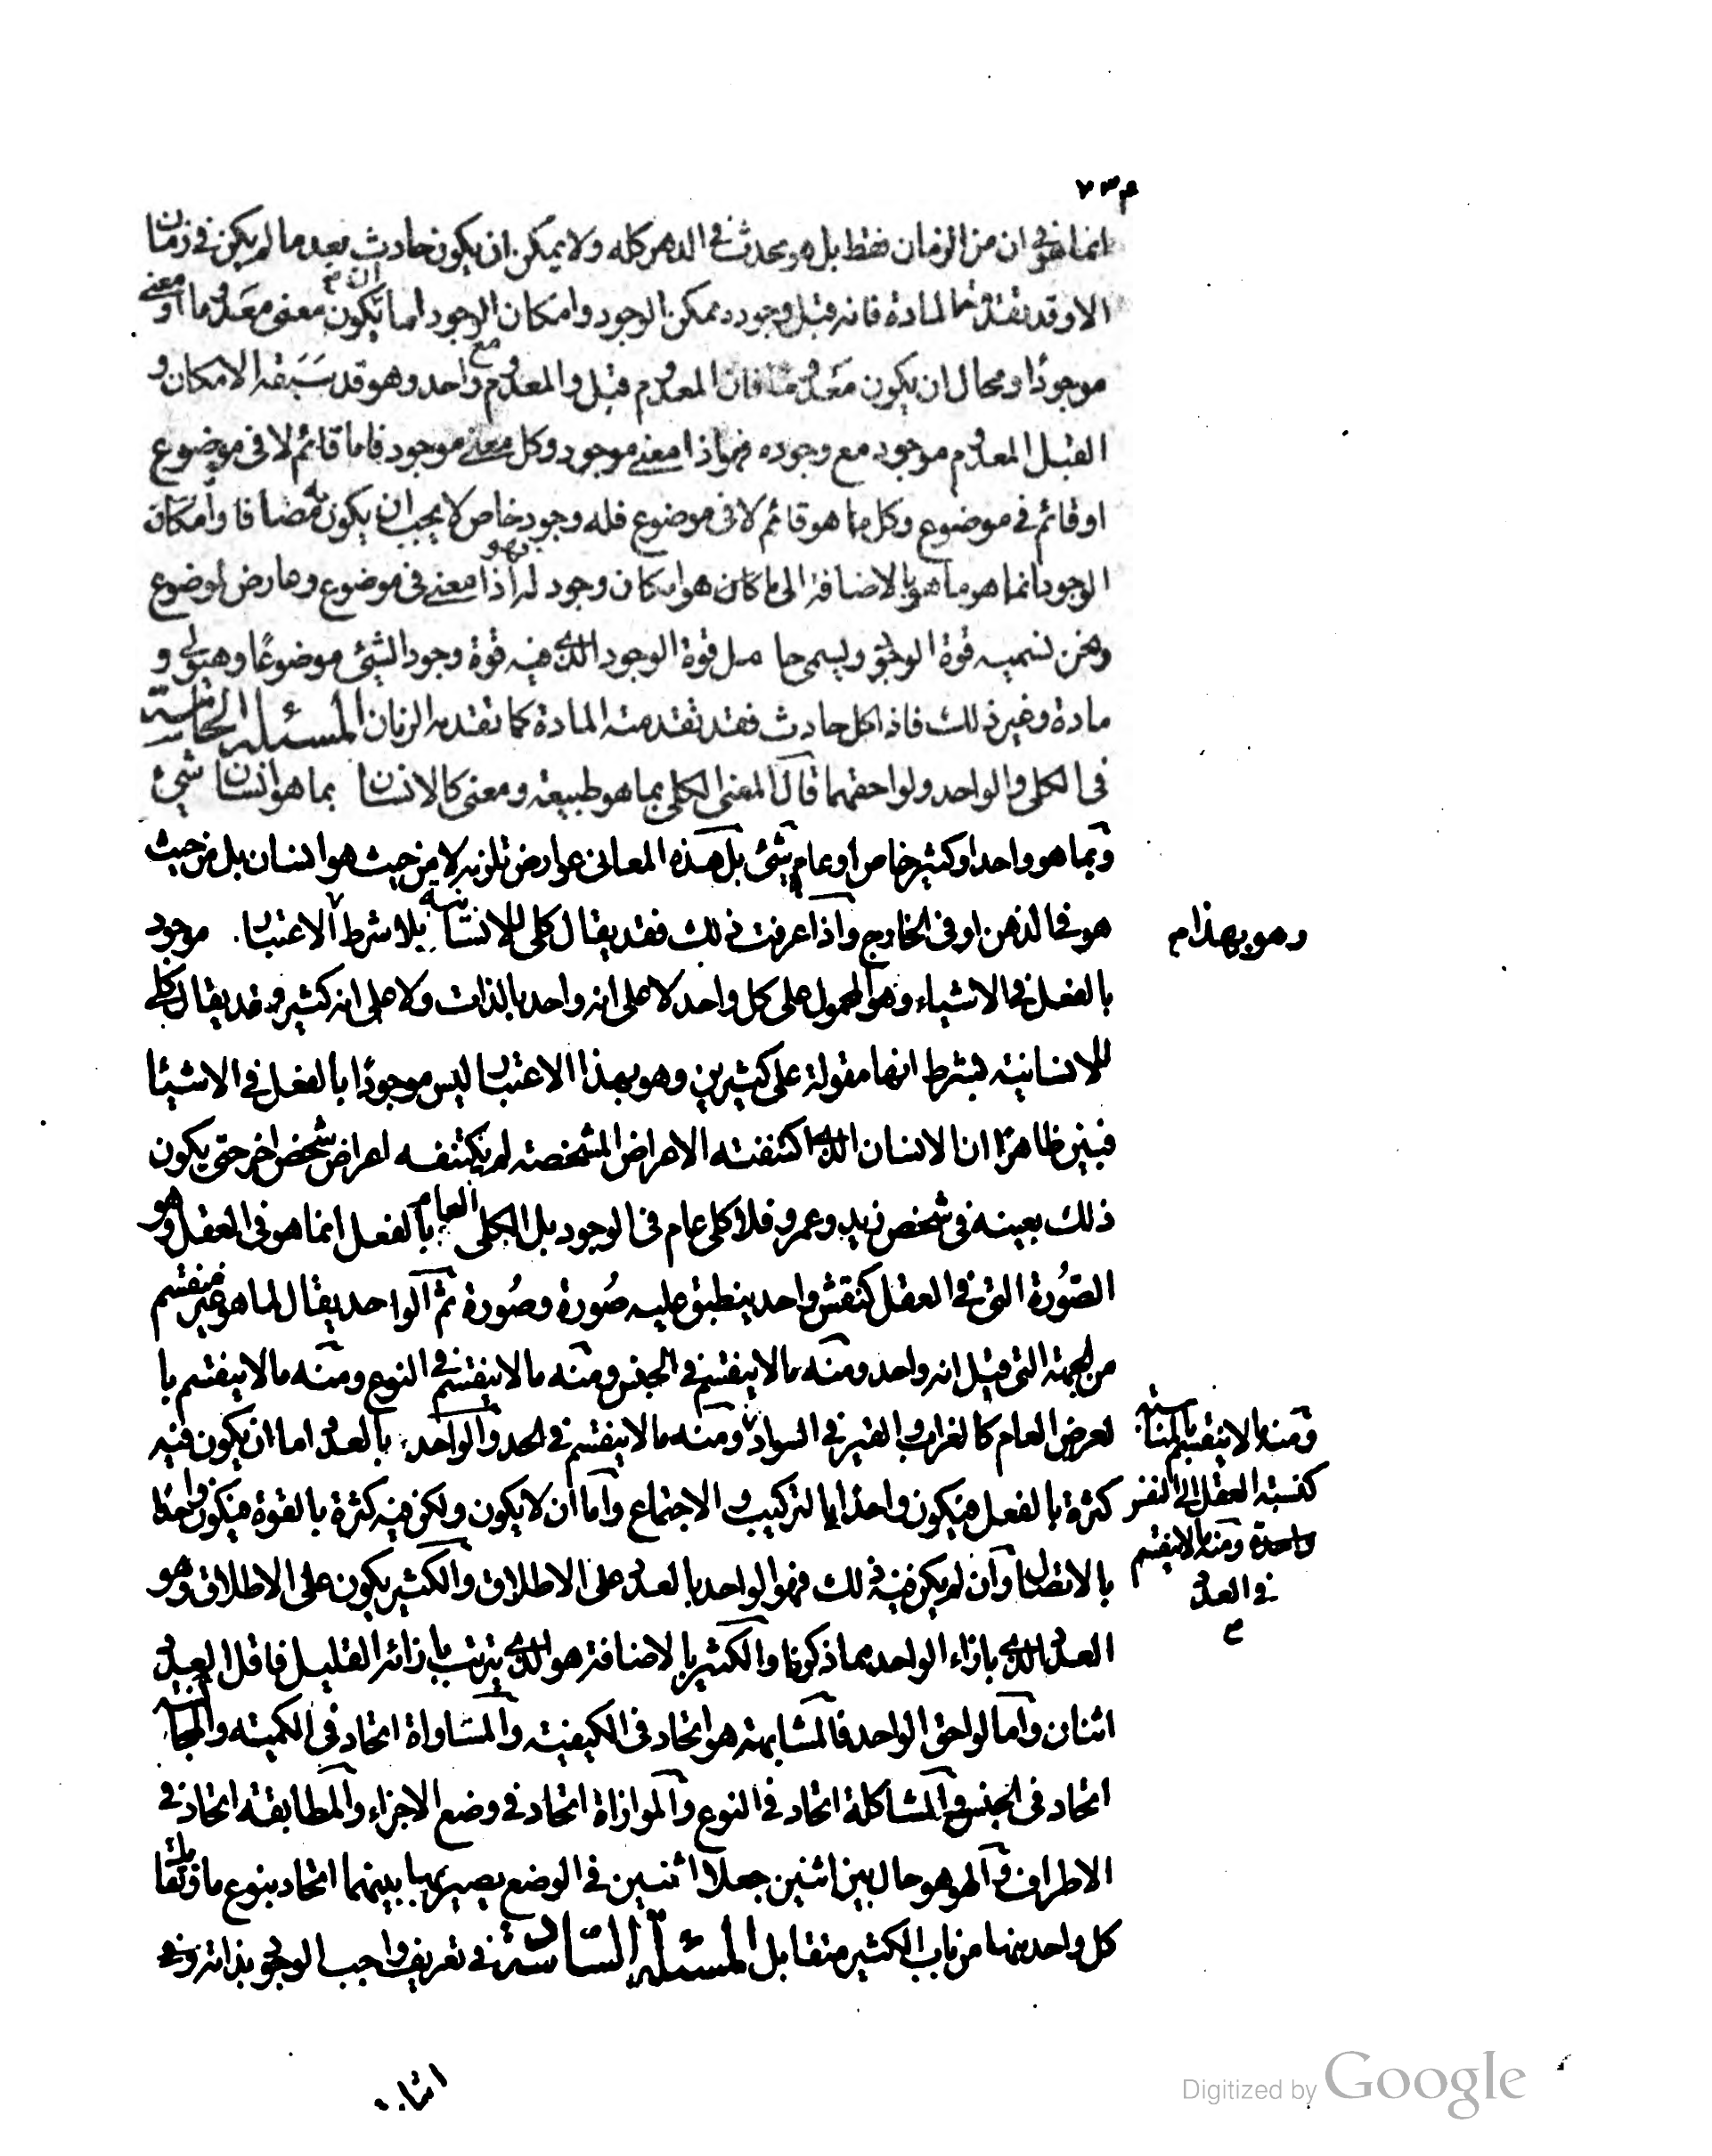 انما هو في ان من الزمان فقط بل هو محدث في الدهر كله ولا يمكن ان يكون حادث بعد ما لم يكن في زمان
الا وقد تقدمته المادة فانه قبل وجوده ممكن الوجود وامكان الوجود اما ان يكون معنى معدوما او معنى
موجودا ومحال ان يكون معدوما فان المعدوم قبل والمعدوم مع واحد وهو قد سبقه الامكان و
القبل المعدوم موجود مع وجوده فهو اذا معنى موجود وكل معنى موجود فاما قائم لا في موضوع
او قائم في موضوع وكل ما هو قائم لا في موضوع فله وجود خاص لا يجب ان يكون به مضافا وامكان
الوجود انما هو ما هو بالاضافة الى ما كان هو امكان وجود له فهو اذا معنى في موضوع وعارض لموضوع
ونحن نسميه قوة الوجود ويسمى حامل قوة الوجود الذي فيه قوة وجود الشئ موضوعا وهيولى و
مادة وغير ذلك فاذا كل حادث فقد تقدمته المادة كما تقدمه الزمان المسئلة الخامسة
في الكلي والواحد ولواحقهما قال المعنى الكلي بما هو طبيعة ومعنى كالانسان بما هو انسان شئ
وبما هو واحد او كثير خاص او عام شئ بل هذه المعاني عوارض تلزمه لا من حيث هو انسان بل من حيث
هو في الذهن او في الخارج واذا عرفت ذلك فقد يقال كلي للانسانية بلا شرط الاعتبار موجود
وهو بهذا م
بالفعل في الاشياء وهو المحمول على كل واحد لا على انه واحد بالذات ولا على انه كثير وقد يقال كلي
للانسانية بشرط انها مقولة على كثيرين وهو بهذا الاعتبار ليس موجودا بالفعل في الاشياء
فبين ظاهرا ان الانسان الذي اكتنفته الاعراض المشخصة لم يكتنفه اعراض شخص اخر حتى يكون
ذلك بعينه في شخص زيد وعمرو فلا كلي عام في الوجود بل الكلي العام بالفعل انما هو في العقل وهو
الصورة التي في العقل كنقش واحد ينطبق عليه صورة وصورة ثم الواحد يقال لما هو غير منقسم
من الجهة التي قيل انه واحد ومنه ما لا ينقسم في الجنس ومنه ما لا ينقسم في النوع ومنه ما لا ينقسم با
لعرض العام كالغراب والقير في السواد ومنه ما لا ينقسم في الحد والواحد بالعدد اما ان يكون فيه
ومنه ما لا ينقسم بالمناسبة
كنسبة العقل الى النفس
واحدة ومنه ما لا ينقسم
في العدد
كثرة بالفعل فيكون واحدا بالتركيب والاجتماع واما ان لا يكون ولكن فيه كثرة بالقوة فيكون واحدا
بالاتصال وان لم يكن فيه ذلك فهو الواحد بالعدد على الاطلاق والكثير يكون على الاطلاق وهو
العدد الذي بازاء الواحد مما ذكرنا والكثير بالاضافة هو الذي يترتب بازائه القليل فاقل العدد
اثنان واما لواحق الواحد فالمشابهة هو اتحاد في الكيفية والمساواة اتحاد في الكمية والمجانسة
اتحاد في الجنس والمشاكلة اتحاد في النوع والموازاة اتحاد في وضع الاجزاء والمطابقة اتحاد في
الاطراف والهو هو حال بين اثنين جعلا اثنين في الوضع يصير بها بينهما اتحاد بنوع ما ويقابل
كل واحد منها من باب الكثير متقابل المسئلة السادسة في تعريف واجب الوجود بذاته وانه
Digitized by Google